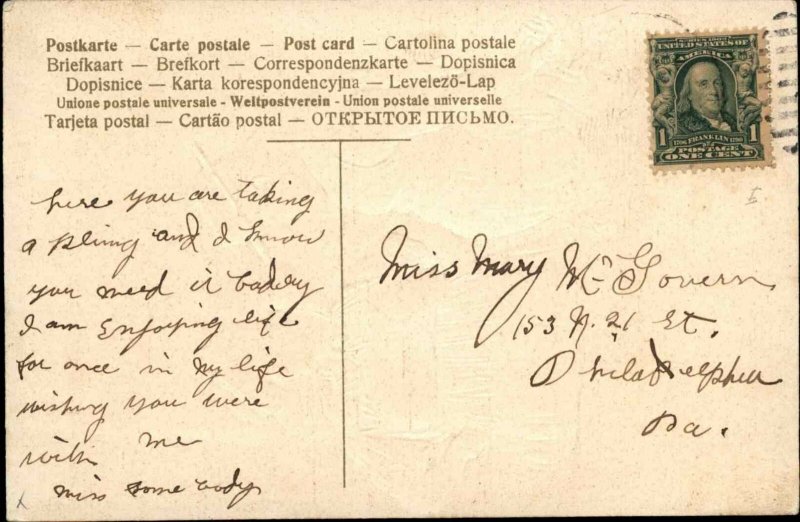 Postkarte — Carte postale — Post card — Cartolina postale
Briefkaart — Brefkort — Correspondenzkarte — Dopisnica
Dopisnice — Karta korespondencyjna — Levelező-Lap
Unione postale universale - Weltpostverein - Union postale universelle
Tarjeta postal — Cartão postal — ОТКРЫТОЕ ПИСЬМО.
SERIES 1902
UNITED STATES OF
AMERICA
1706 FRANKLIN 1790
1 POSTAGE 1
ONE CENT
here you are taking
a plung and I know
you need it badly
I am enjoying life
for once in my life
wishing you were
with me
miss some body
Miss Mary McGovern
153 N. 21 St.
Philadelphia
Pa.